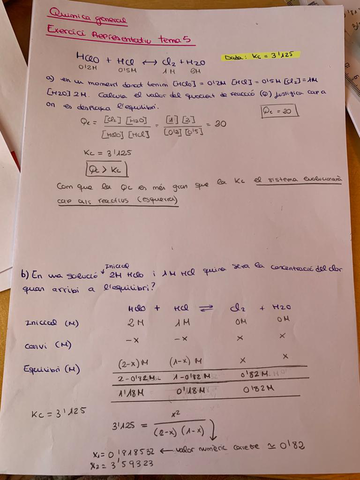 Química general
Exercici Representatiu tema 5
HClO + HCl ⇌ Cl2 + H2O
Data: Kc = 3'125
0'2M 0'5M 1M 2M
a) en un moment donat tenim [HClO] = 0'2M [HCl] = 0'5M [Cl2] = 1M
[H2O] 2M. Calcula el valor del quocient de reacció (Q) i justifica cap a
on es desplaça l'equilibri.
Qc = 20
Qc = [Cl2] [H2O] / [HClO] [HCl] = [1] [2] / [0'2] [0'5] = 20
Kc = 3'125
Qc > Kc
Com que la Qc es més gran que la Kc el sistema evolucionarà
cap als reactius (esquerra)
b) En una solució inicial 2M HClO i 1M HCl quina serà la concentració del clor
quan arribi a l'equilibri?
HClO + HCl ⇌ Cl2 + H2O
Inicial (M) 2M 1M 0M 0M
Canvi (M) -x -x x x
Equilibri (M) (2-x)M (1-x)M x x
2-0'82M 1-0'82M 0'82M
1'18M 0'18M 0'82M
Kc = 3'125
3'125 = x² / (2-x) (1-x)
x1 = 0'818532 ← valor numèric correcte ≃ 0'82
x2 = 3'59323